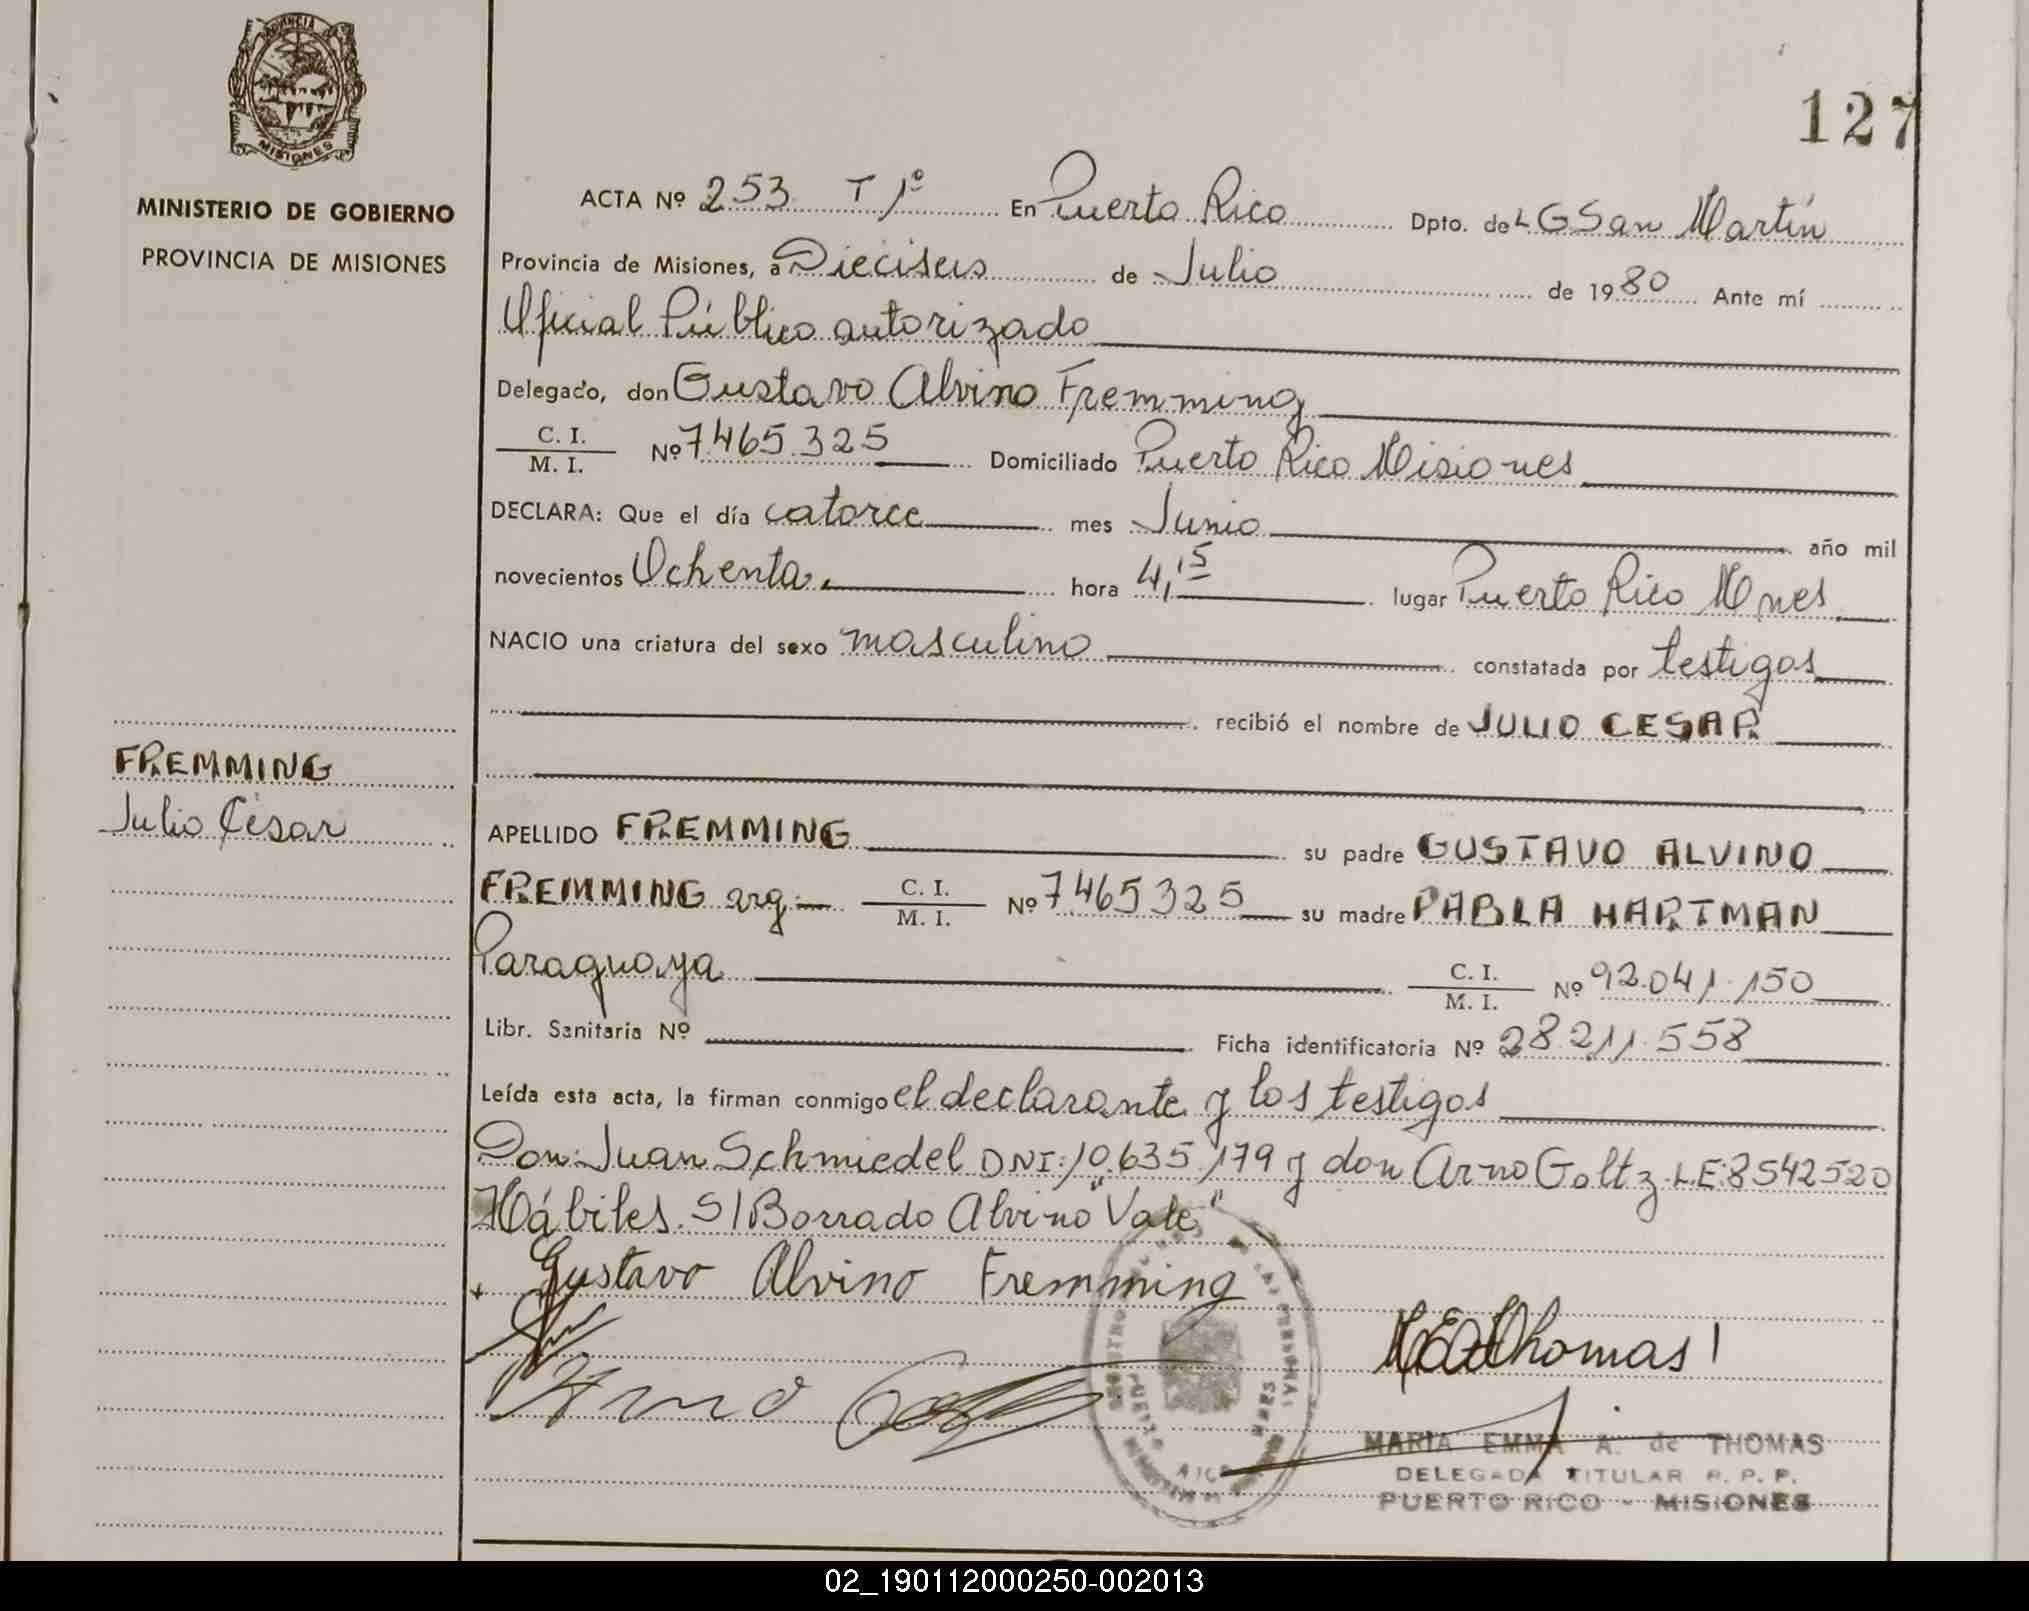 PROVINCIA
MISIONES
MINISTERIO DE GOBIERNO
PROVINCIA DE MISIONES
FREMMING
Julio César
127
ACTA Nº 253 T 1º En Puerto Rico Dpto. de L G San Martín
Provincia de Misiones, a Dieciseis de Julio de 1980 Ante mí
Oficial Público autorizado
Delegado, don Gustavo Alvino Fremming
C. I.
M. I. Nº 7.465.325 Domiciliado Puerto Rico Misiones
DECLARA: Que el día catorce mes Junio año mil
novecientos Ochenta. hora 4,15 lugar Puerto Rico Mnes
NACIO una criatura del sexo masculino constatada por testigos
recibió el nombre de JULIO CESAR
APELLIDO FREMMING su padre GUSTAVO ALVINO
FREMMING arg. C. I.
M. I. Nº 7.465325 su madre PABLA HARTMAN
Paraguaya C. I.
M. I. Nº 92.041.150
Libr. Sanitaria Nº Ficha identificatoria Nº 28.211.558
Leída esta acta, la firman conmigo el declarante y los testigos
Don: Juan Schmiedel DNI: 10.635.179 y don Arno Goltz L.E: 8542520
Hábiles. S/Borrado Alvino "Vale"
Gustavo Alvino Fremming
Arno
MEAdThomas
MARIA EMMA A. de THOMAS
DELEGADA TITULAR R. P. P.
PUERTO RICO - MISIONES
02_190112000250-002013